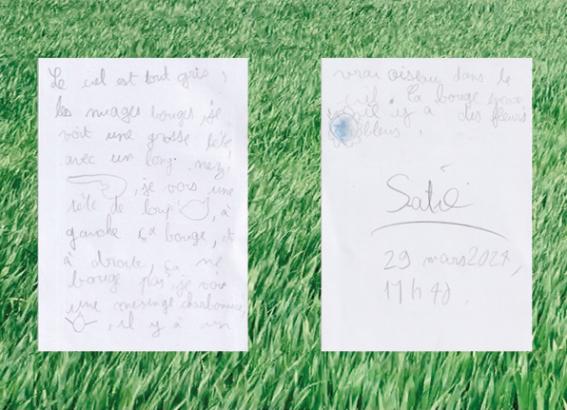 Le ciel est tout gris,
les nuages bouges je
voit une grosse tête
avec un long nez,
je vois une
tête de loup, à
gauche ça bouge, et
à droite, ça ne
bouge pas je vois
une mesinge charbonniere,
il y à un
vrai oiseau dans le
ciel. ça bouge
il y a des fleurs
bleus.
Satie
29 mars 2024,
17h40.